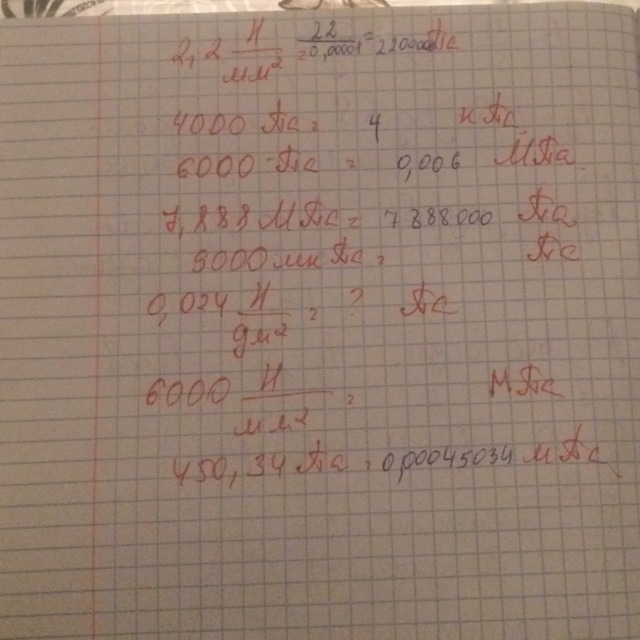 2,2 Н/мм² = 22/0,00001 = 2200000 Па
4000 Па = 4 кПа
6000 Па = 0,006 МПа
7,888 МПа = 7888000 Па
9000 мкПа = Па
0,024 Н/дм² = ? Па
6000 Н/мм² = МПа
450,34 Па = 0,00045034 мПа